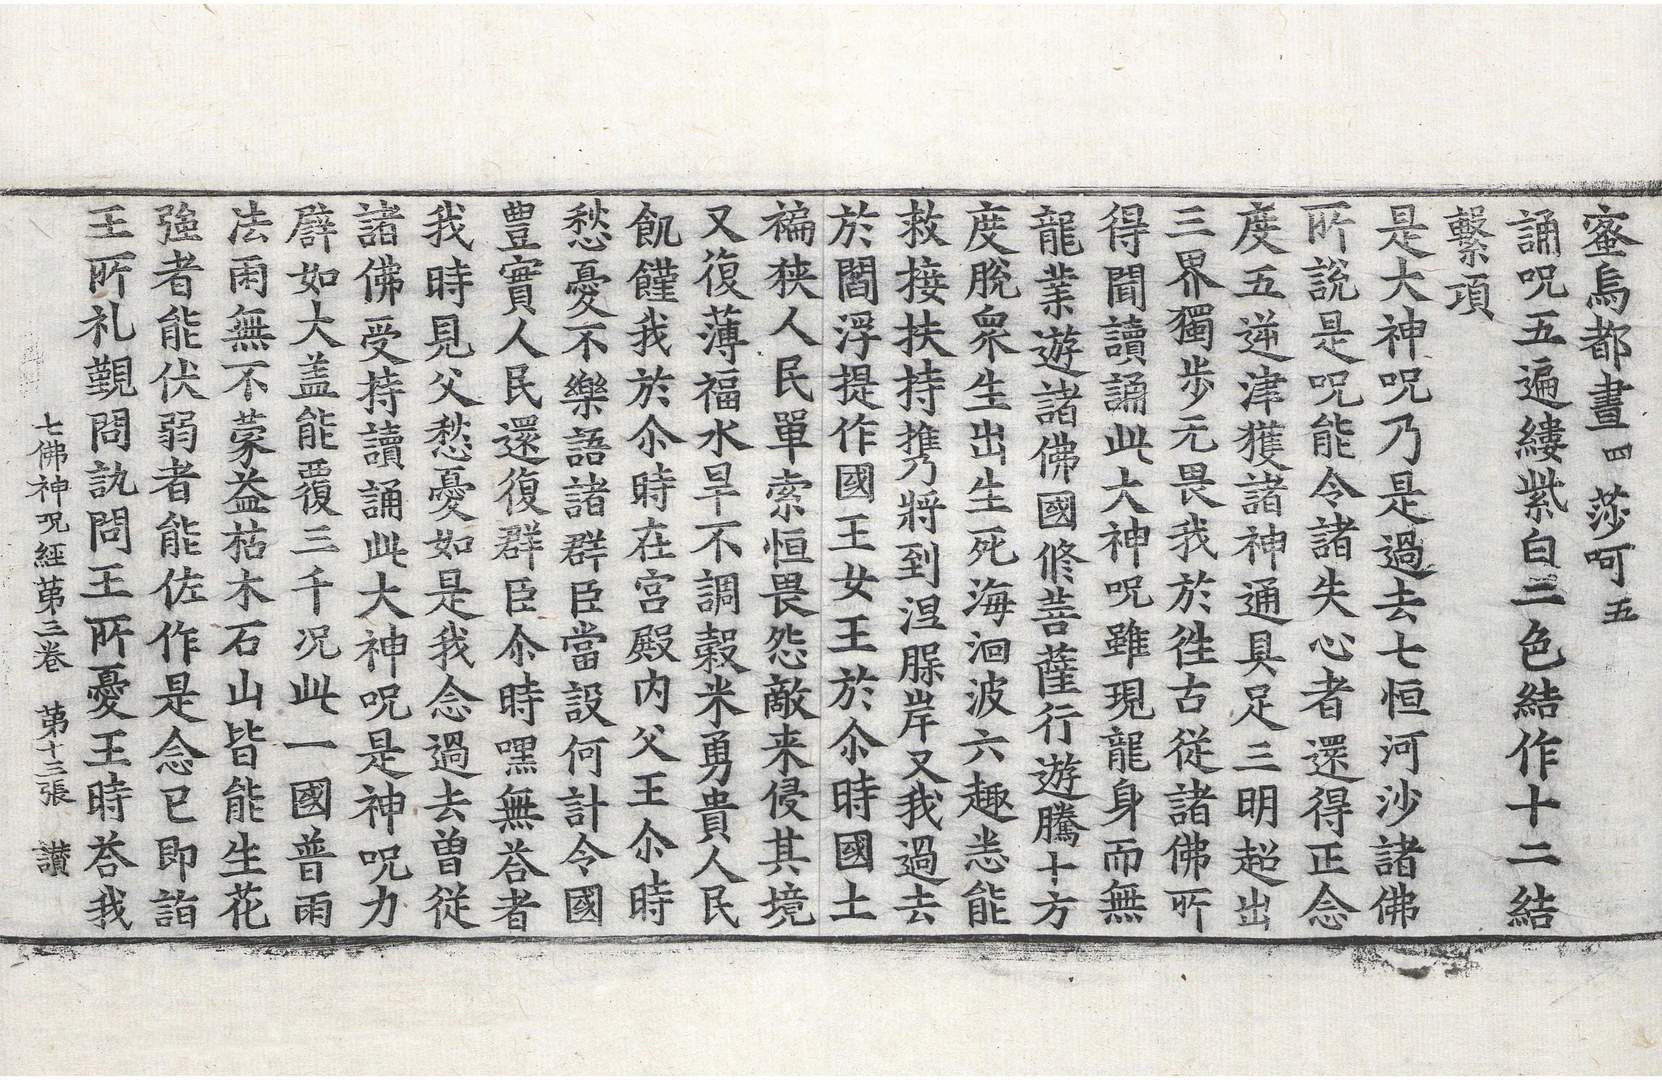 蜜烏都晝 四 莎呵 五
誦呪五遍縷紫白三色結作十二結
繫項
是大神呪乃是過去七恒河沙諸佛
所說是呪能令諸失心者還得正念
度五逆津獲諸神通具足三明超出
三界獨步无畏我於徃古從諸佛所
得聞讀誦此大神呪雖現龍身而無
龍業遊諸佛國修菩薩行遊騰十方
度脫衆生出生死海洄波六趣悉能
救接扶持擕乃將到涅𣵀岸又我過去
於閻浮提作國王女王於尒時國土
褊狹人民單索恒畏怨敵来侵其境
又復薄福水旱不調糓米勇貴人民
飢饉我於尒時在宮殿內父王尒時
愁憂不樂語諸群臣當設何計令國
豊實人民還復群臣尒時嘿無荅者
我時見父愁憂如是我念過去曾從
諸佛受持讀誦此大神呪是神呪力
譬如大盖能覆三千况此一國普雨
法雨無不蒙益枯木石山皆能生花
強者能伏弱者能佐作是念已即詣
王所礼覲問訊問王所憂王時荅我
七佛神呪經苐三卷 苐十三張 讃